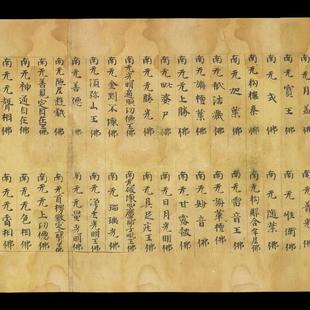 南无月蓋佛
南无寶王佛
南无佛
南无拘樓秦佛
南无迦葉佛
南无佛
南无旃檀佛
南无上勝佛
南无毗婆尸佛
南无勝光佛
南无光明遍照功德王佛
南无金剛不壞佛
南无須弥山王佛
南无善德佛
南无陁羅遊戲佛
南无善寂定自在佛
南无神通自在佛
南无聲相佛
南无佛
南无惟衛佛
南无隨葉佛
南无拘那含牟尼佛
南无雷音王佛
南无旃檀佛
南无妙音佛
南无甘露鼓佛
南无日月光明佛
南无具足王佛
南无破壞四魔師子吼王佛
南无瑠璃光佛
南无光明王佛
南无光明佛
南无首楞嚴定佛
南无上功德佛
南无色相佛
南无香相佛